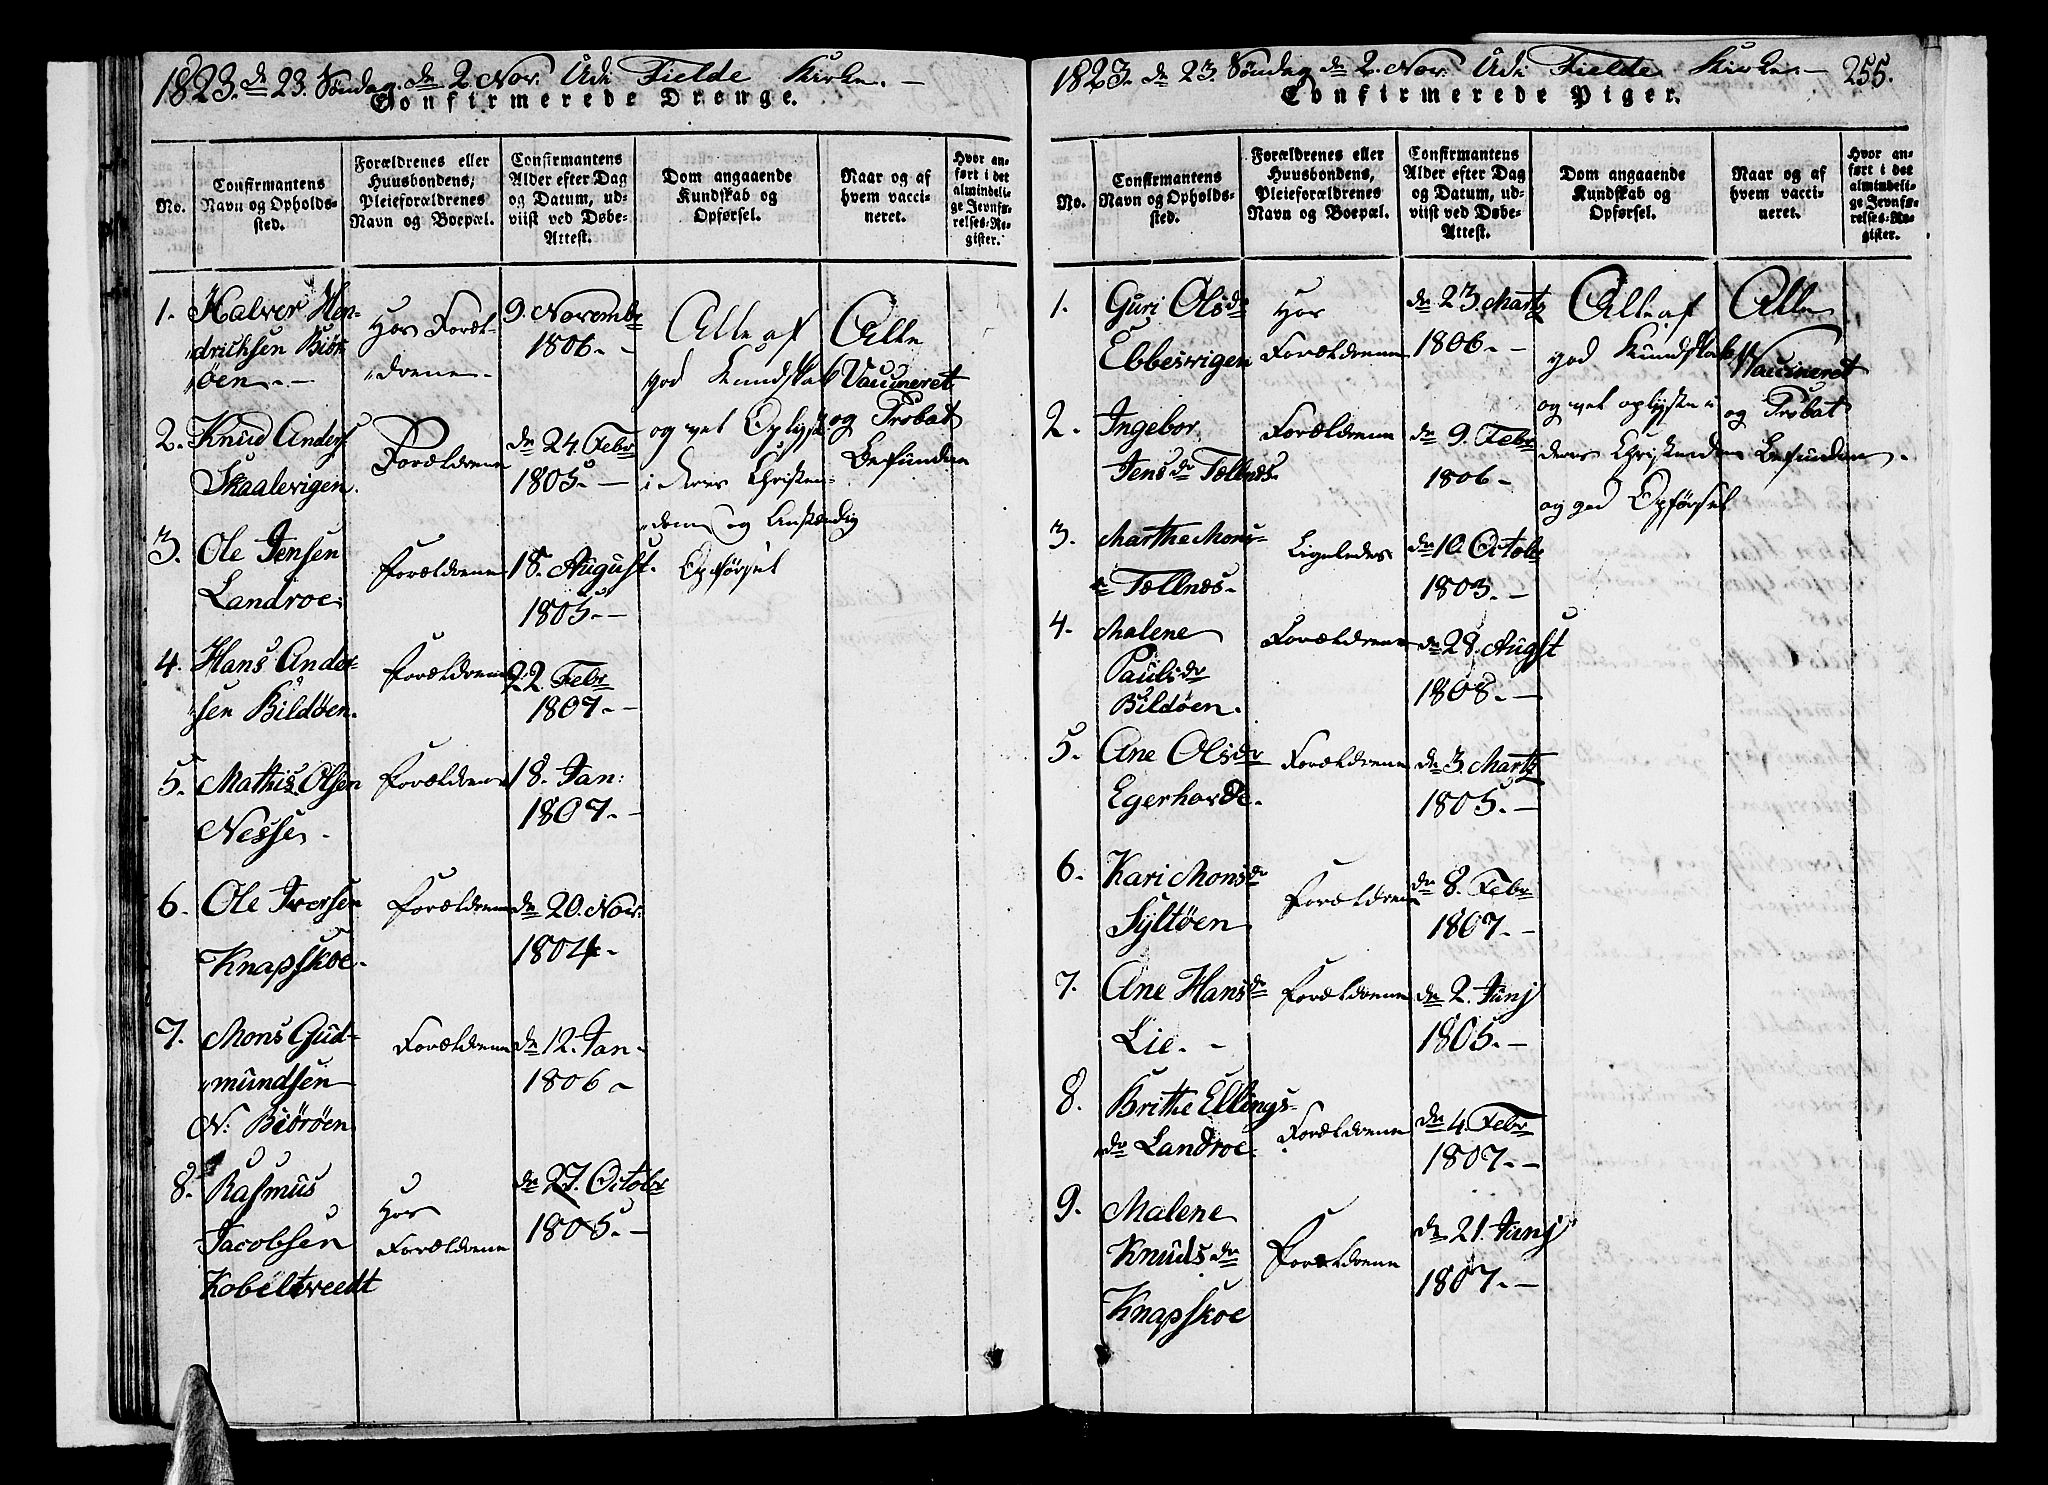 1823. d 23. Søndag d 2. Nov. Udi Fielde Kirke. —
Confirmerede Drenge.
No.
Confirmantens
Navn og Opholds-
sted.
Forældrenes eller
Huusbondens,
Pleieforældrenes
Navn og Boepæl.
Confirmantens
Alder efter Dag
og Datum, ud-
viist ved Døbe-
Attest.
Dom angaaende
Kundskab og
Opførsel.
Naar og af
hvem vacci-
neret.
Hvor an-
ført i det
almindeli-
ge Jevnfø-
relses-Re-
gister.
1. Halver Hen-
drichsen Biør-
øen. —
Hos Foræl-
drene.
9. Novembr
1806. —
Alle af
god Kundskab
og vel Oplyst
i deres Christen-
dom og Anstændig
Opførsel
Alle
Vaccineret
og Probat
Befunden
2. Knud Anders
Skaalevigen.
Forældrene
den 24. Febr
1805. —
3. Ole Jensen
Landroe
Forældrene
18. August.
1805. —
4. Hans Ander-
sen Bildøen.
Forældrene
22 Febr
1807. —
5. Mathis Olsen
Nesse.
Forældrene
18. Jan:
1807. —
6. Ole Iversen
Knapskoe.
Forældrene
den 20. Nov.
1804.
7. Mons Gud-
mundsen
N: Biørøen
Forældrene
den 12. Jan
1806
8. Rasmus
Jacobsen
Kobeltveedt
Hos
Forældrene
den 27. Octobr
1805. —
1823. d 23. Søndag d 2. Nov. Udi Fielde Kirke. — 255.
Confirmerede Piger.
No.
Confirmantens
Navn og Opholds-
sted.
Forældrenes eller
Huusbondens,
Pleieforældrenes
Navn og Boepæl.
Confirmantens
Alder efter Dag
og Datum, ud-
viist ved Døbe-
Attest.
Dom angaaende
Kundskab og
Opførsel.
Naar og af
hvem vacci-
neret.
Hvor an-
ført i det
almindeli-
ge Jevnfø-
relses-Re-
gister.
1. Guri Olsdr
Ebbesvigen
Hos
Forældrene
den 23. Martz
1806. —
Alle af
god Kundskab
og vel oplyste i
deres Christendom
og god Opførsel
Alle
Vaccineret
og Probat
Befunden.
2. Ingebor
Jensdr Tællnes.
Forældrene
den 9. Febr
1806
3. Marthe Mons-
dr Tællnes.
Ligeledes
den 10. Octobr
1803. —
4. Malene
Paulsdr
Bildøen.
Forældrene
den 28. Augst
1808. —
5. Ane Olsdr
Egerhorde.
Forældrene
den 3. Martz
1805. —
6. Kari Monsdr
Syltøen
Forældrene
den 8. Febr
1807. —
7. Ane Hansdr
Lie. —
Forældrene
den 2. Junj
1805. —
8. Brithe Ellings-
dr Landroe.
Forældrene
den 4. Febr
1807. —
9. Malene
Knudsdr
Knapskoe
Forældrene
den 21. Junj
1807. —